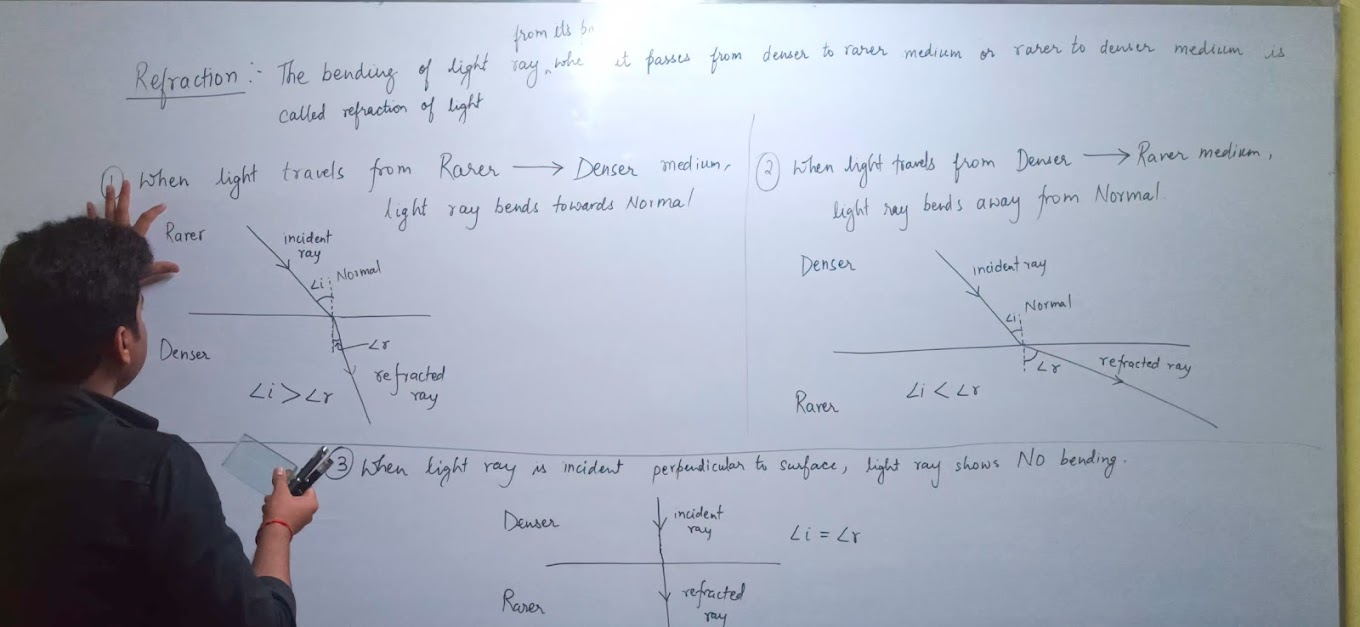 from its
Refraction :- The bending of light ray, it passes from denser to rarer medium or rarer to denser medium is
called refraction of light
① When light travels from Rarer → Denser medium,
light ray bends towards Normal
Rarer
incident
ray
∠i
Normal
Denser
∠r
refracted
ray
∠i > ∠r
② When light travels from Denser → Rarer medium,
light ray bends away from Normal.
Denser
incident ray
∠i
Normal
∠r
refracted ray
Rarer
∠i < ∠r
③ When light ray is incident perpendicular to surface, light ray shows NO bending.
Denser
incident
ray
∠i = ∠r
Rarer
refracted
ray